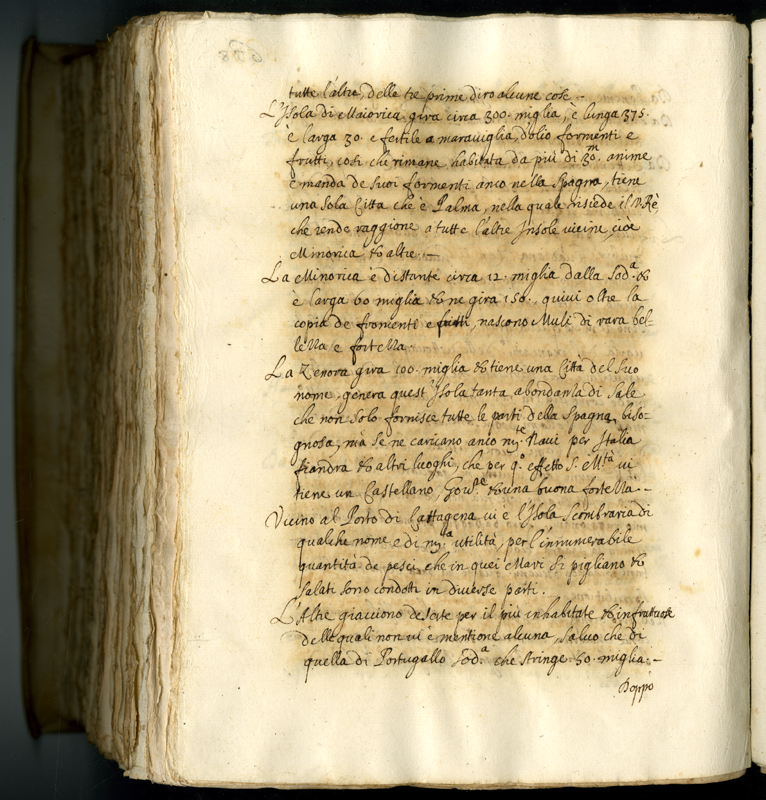 tutte l'altre, delle tre prime diro alcune cose.–
L'Isola di Maiorica gira circa 300. miglia, è lunga 375.
è larga 30. e fertile a maraviglia d'olio formenti e
frutti, cosi che rimane habitata da più di 30.m anime
e manda de suoi formenti anco nella Spagna, tiene
una sola Citta che è Palma, nella quale risiede il VRè
che rende raggione a tutte l'altre Insole vicine, cioè
Minorica & altre.–
La Minorica è distante circa 12. miglia dalla Sod.a &
è larga 60 miglia & ne gira 150., quivi oltre la
copia de fromenti e frutti, nascono Muli di rara bel-
lezza e fortezza.
La Zenora gira 100. miglia & tiene una Città del suo
nome, genera quest'Isola tanta abondanza di sale
che non solo fornisce tutte le parti della Spagna biso-
gnosa, mà se ne caricano anco m.te Navi per Italia
fiandra & altri luoghi, che per q.o effetto S. M.tà vi
tiene un Castellano, Gov.re & una buona fortezza.–
Vicino al Porto di Cartagena vi è l'Isola Scombraria di
qualche nome e di m.a utilità, per l'innumerabile
quantità de pesci, che in quei Mari si pigliano &
salati sono condotti in diverse parti.
L'Altre giacciono deserte per il più inhabitate & infruttuose
delle quali non vi è mentione alcuna, salvo che di
quella di Portugallo Sod.a che stringe 60. miglia.–
Doppò